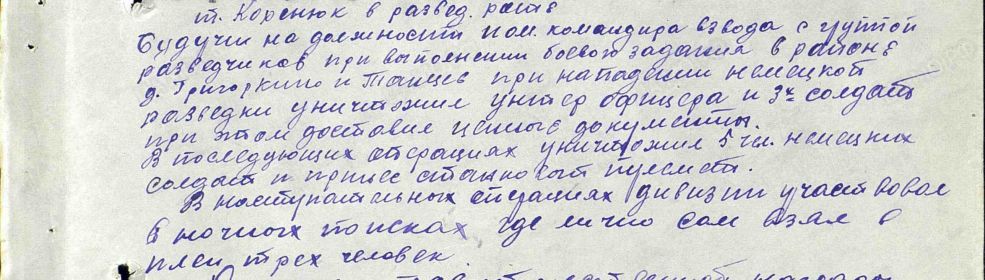 т. Коренюк в развед. роте
Будучи на должности пом. командира взвода с группой
разведчиков при выполнении боевого задания в районе
д. Григоркино и Танцев при нападении немецкой
разведки уничтожил унтер офицера и 3х солдат
при этом доставил ценные документы.
В последующих операциях уничтожил 5 чл. немецких
солдат и принес станковый пулемет.
В наступательных операциях дивизии участвовал
в ночных поисках где лично сам взял в
плен трех человек.